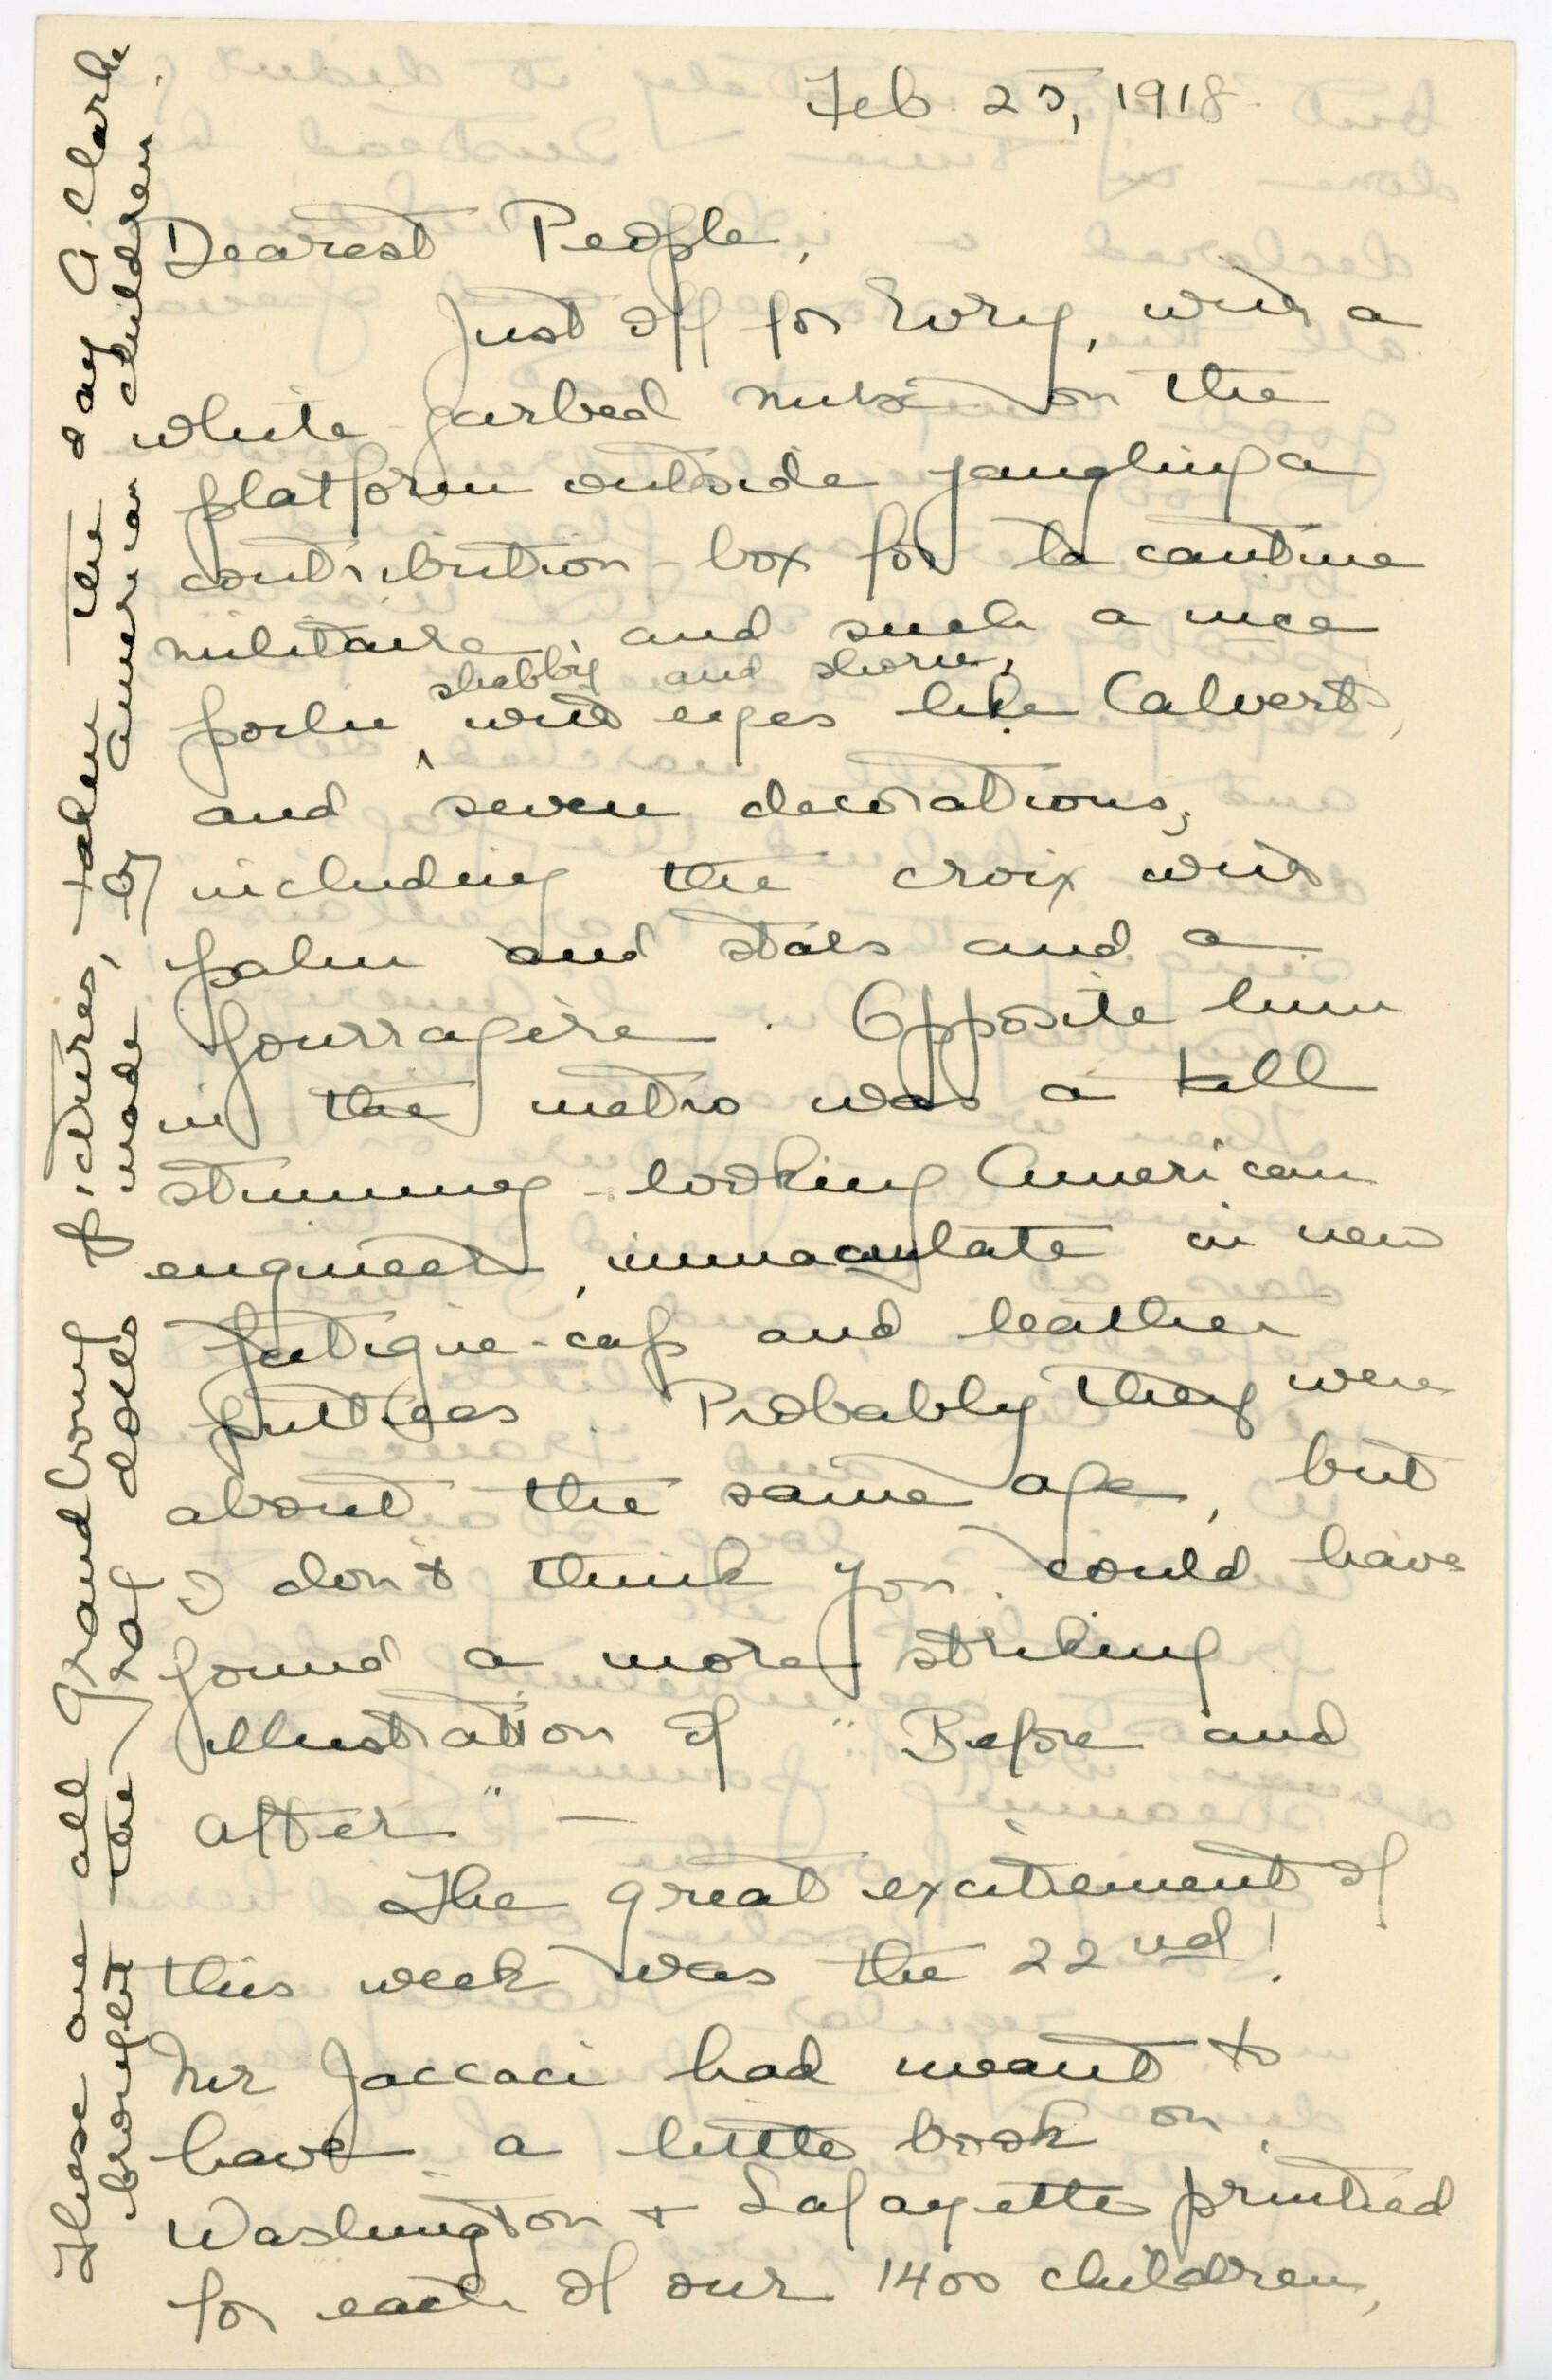 Feb 25, 1918.
Dearest People,
Just off for Evry, with a
white-garbed nurse on the
platform outside jangling a
contribution-box for la cantine
militaire, and such a nice
shabby and shorn,
poilu ^ with eyes like Calvert's,
and seven decorations,
including the croix with
palm and stars and a
fourragère. Opposite him
in the metro was a tall
stunning-looking American
engineer, immaculate in new
fatigue-cap and leather
puttees Probably they were
about the same age, but
I don't think you could have
found a more striking
illustration of "Before and
after" —
The great excitement of
this week was the 22nd!
Mr Jaccaci had meant to
have a little book on
Washington + Lafayette printed
for each of our 1400 children,
These are all Grand Bourg pictures, taken the day A. Clarke
brought the rag dolls made, by American children.